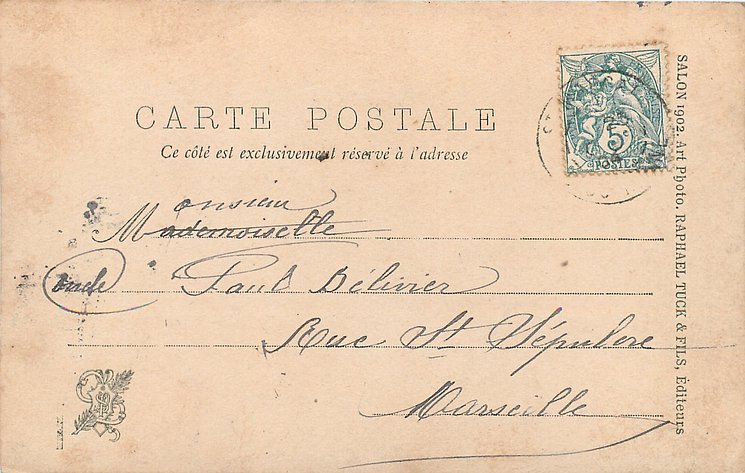 CARTE POSTALE
Ce côté est exclusivement réservé à l'adresse
onsieur
Mademoiselle
oncle
Paul Bélivier
Rue St Sépulcre
Marseille
5c
POSTES
SALON 1902. Art Photo. RAPHAEL TUCK & FILS, Éditeurs